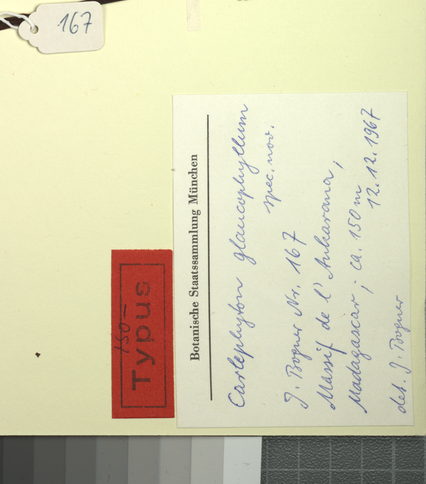 167
Iso-
Typus
Botanische Staatssammlung München
Carlephyton glaucophyllum
spec. nov.
J. Bogner Nr. 167
Massif de l'Ankarana,
Madagascar; ca. 150 m
12.12.1967
det. J. Bogner